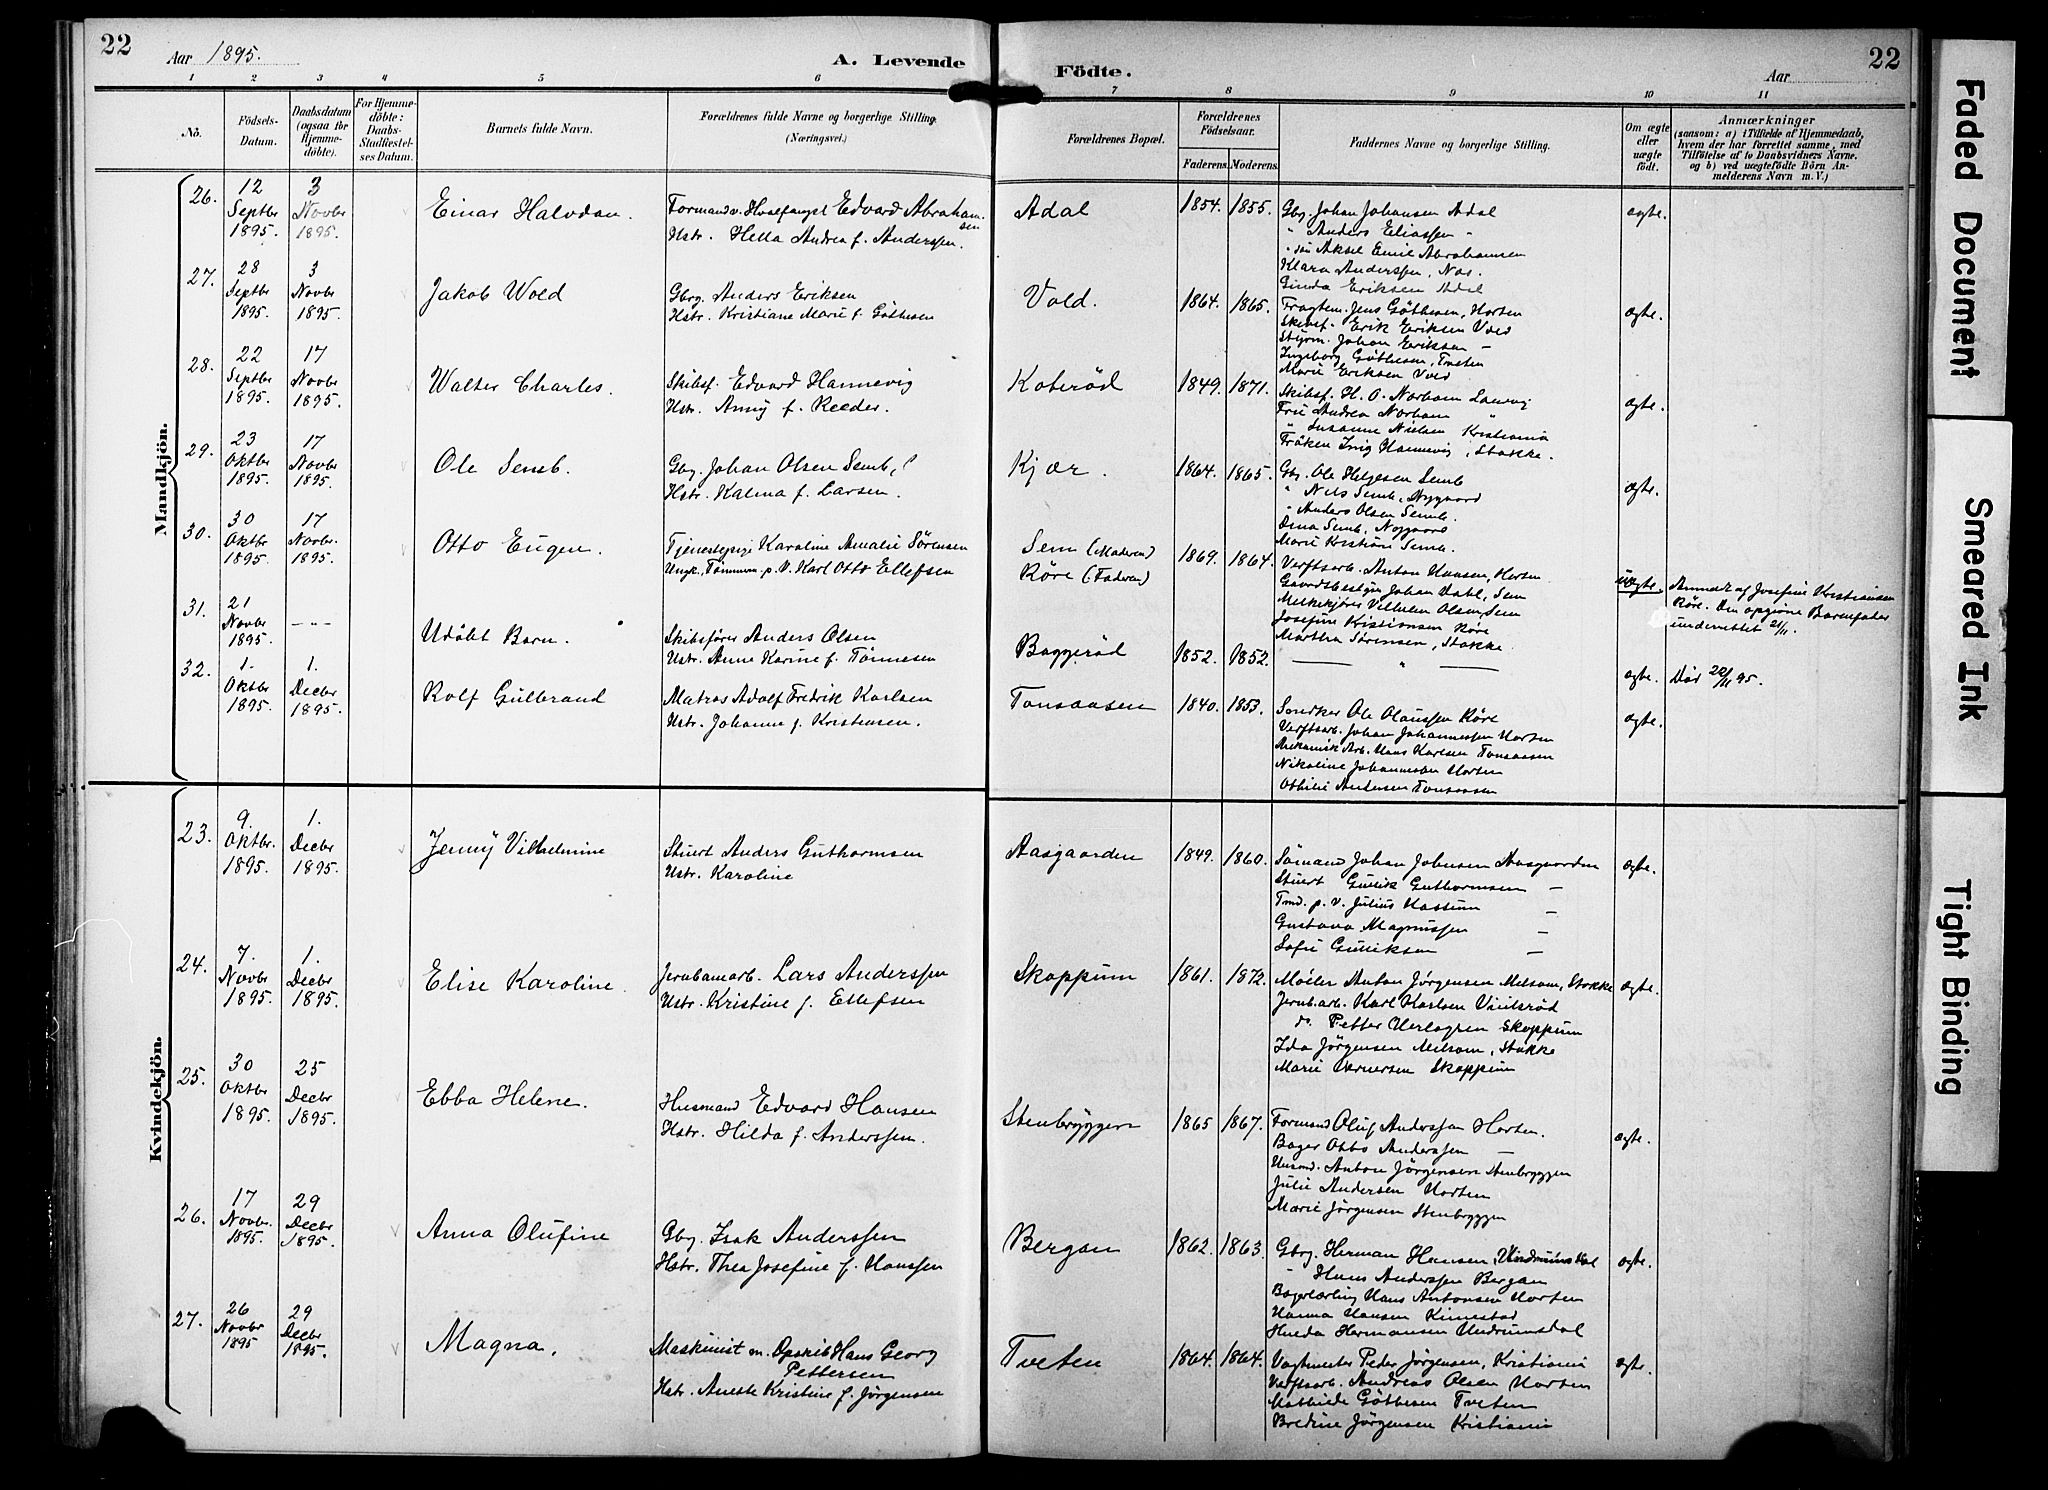 22
Aar 1895.
A. Levende
Födte.
Aar
22
1 2 3 4 5 6 7 8 9 10 11
No.
Födsels-
Datum.
Daabsdatum
(ogsaa for
Hjemme-
döbte).
For Hjemme-
döbte:
Daabs-
Stadfæstel-
ses Datum.
Barnets fulde Navn.
Forældrenes fulde Navne og borgerlige Stilling.
(Næringsvei.)
Forældrenes Bopæl.
Forældrenes
Födselsaar.
Faderens. Moderens.
Faddernes Navne og borgerlige Stilling.
Om ægte
eller
uægte
födt.
Anmærkninger
(saasom: a) i Tilfælde af Hjemmedaab,
hvem der har forrettet samme, med
Tilföielse af to Daabsvidners Navne.
og b) ved uægtefödte Börn An-
melderens Navn m. V.)
Mandkjön.
26.
12
Septbr
1895.
3
Novbr
1895.
Einar Halvdan.
Formand v. Hvalfangst Edvard Abraham-
sen
Hstr. Hella Andrea f. Anderssen.
Adal
1854. 1855.
Gbr. Johan Johansen Adal
" Anders Eliassen "
Aksel Emil Abrahamsen
Klara Anderssen, Nas.
Ginda Eriksen Adal
ægte.
27.
28
Septbr
1895.
3
Novbr
1895.
Jakob Wold
Gbrg. Anders Eriksen
Hstr. Kristiane Marie f. Göthesen
Vold.
1864. 1865.
Fragtem. Jens Göthesen, Horten
Skibsf. Erik Eriksen Vold
Styrm. Johan Eriksen —
Ingeborg Göthesen, Tveten
Marie Eriksen Vold
ægte.
28.
22
Septbr
1895.
17
Novbr
1895.
Walter Charles.
Skibsf. Edvard Hannevig
Hstr. Anny f. Reeder.
Koterød
1849. 1871.
Skibsf. H. O. Norham Laurvig
Fru Andrea Norham "
" Susanne Nielsen Kristiania
Frøken Inig Hannevig, Stokke.
ægte.
29.
23
Oktbr
1895.
17
Novbr
1895.
Ole Semb.
Gbrg. Johan Olsen Semb,
Hstr. Kalma f. Larsen.
Kjær.
1864. 1865.
Gbr. Ole Helgesen Semb
" Nils Semb, Nygaard
" Anders Olsen Semb.
Dina Semb, Nygaard
Marie Kristine Semb.
ægte.
30.
30
Oktbr
1895.
17
Novbr.
1895.
Otto Eugen.
Tjenestepige Karoline Amalie Sörensen
Ungk., Tömmerm. p. V. Karl Otto Ellefsen
Sem (Moderen)
Röre (Faderen)
1869. 1864.
Verftsarb. Anton Hansen, Horten
Gaardsbestyr Johan Dahl, Sem
Melkekjører Vilhelm Olsen, Sem
Josefine Kristiansen Røre
Martha Sörensen, Stokke.
uægte.
Anmeldt af Josefine Kristiansen
Röre. Den opgivne Barnefader
underrettet 21/11.
31.
21
Novbr
1895.
— " —
Udöbt Barn.
Skibsfører Anders Olsen
Hstr. Anne Karine f. Tönnesen
Boggeröd
1852. 1852.
— " —
ægte.
Död 22/11 95.
32.
1.
Oktbr
1895.
1.
Decbr
1895.
Rolf Gulbrand
Matros Adolf Fredrik Karlsen
Hstr. Johanne f. Kristensen.
Tonsaasen
1840. 1853.
Ole Olaussen Röre
Verftsarb. Johan Johannessen Horten
Mekanisk Arb. Hans Karlsen Tonsaasen
Nikoline Johannesen Horten
Othilie Andersen Tonsaasen
ægte.
Kvindekjön.
23.
9.
Oktbr.
1895.
1.
Decbr
1895.
Jenny Vilhelmine
Stuert Anders Guthormsen
Hstr. Karoline
Aasgaarden
1849. 1860.
Sömand Johan Johnsen Aasgaarden
Stuert Gullik Guthormsen —
Tmd. p. V. Julius Hassum —
Gustava Magnussen —
Sofie Gulliksen —
ægte.
24.
7.
Novbr
1895.
1.
Decbr
1895.
Elise Karoline.
Jernbanearb. Lars Anderssen
Hstr. Kristine f. Ellefsen
Skoppum
1861. 1872.
Møller Anton Jörgensen Melsom, Stokke
Jernb.arb. Karl Karlsen Viulsrød
do. Petter Skoppum
Ida Jörgensen Melsom, Stokke
Marie Skoppum
ægte.
25.
30
Oktbr
1895.
25
Decbr
1895.
Ebba Helene.
Husmand Edvard Hansen
Hstr. Hilda f. Anderssen.
Stenbryggen
1865 1867.
Formand Oluf Anderssen Horten.
Bager Otto Anderssen —
Husmd. Anton Jörgensen Stenbryggen
Julie Andersen Horten
Marie Jörgensen Stenbryggen
ægte.
26.
17
Novbr.
1895.
29
Decbr
1895.
Anna Olufine
Gbrg. Isak Anderssen
Hstr. Thea Josefine f. Hanssen
Bergan
1862. 1863.
Gbrg. Herman Hansen, Undrumsdal
" Hans Anderssen Bergan
Bagerlærling Hans Antonsen Horten
Hanna Hansen Kimestad
Hulda Hermansen Undrumsdal
ægte.
27.
26
Novbr
1895
29
Decbr
1895.
Magna.
Maskinist m. Dpskib Hans Georg
Pettersen
Hstr. Aneste Kristine f. Jørgensen
Tveten
1864. 1864.
Vagtmester Peder Jørgensen, Kristiania
Verftsarb. Andreas Olsen Horten
Mathilde Göthesen Tveten
Bredine Jörgensen Kristiania
ægte.
Faded Document
Smeared Ink
Tight Binding